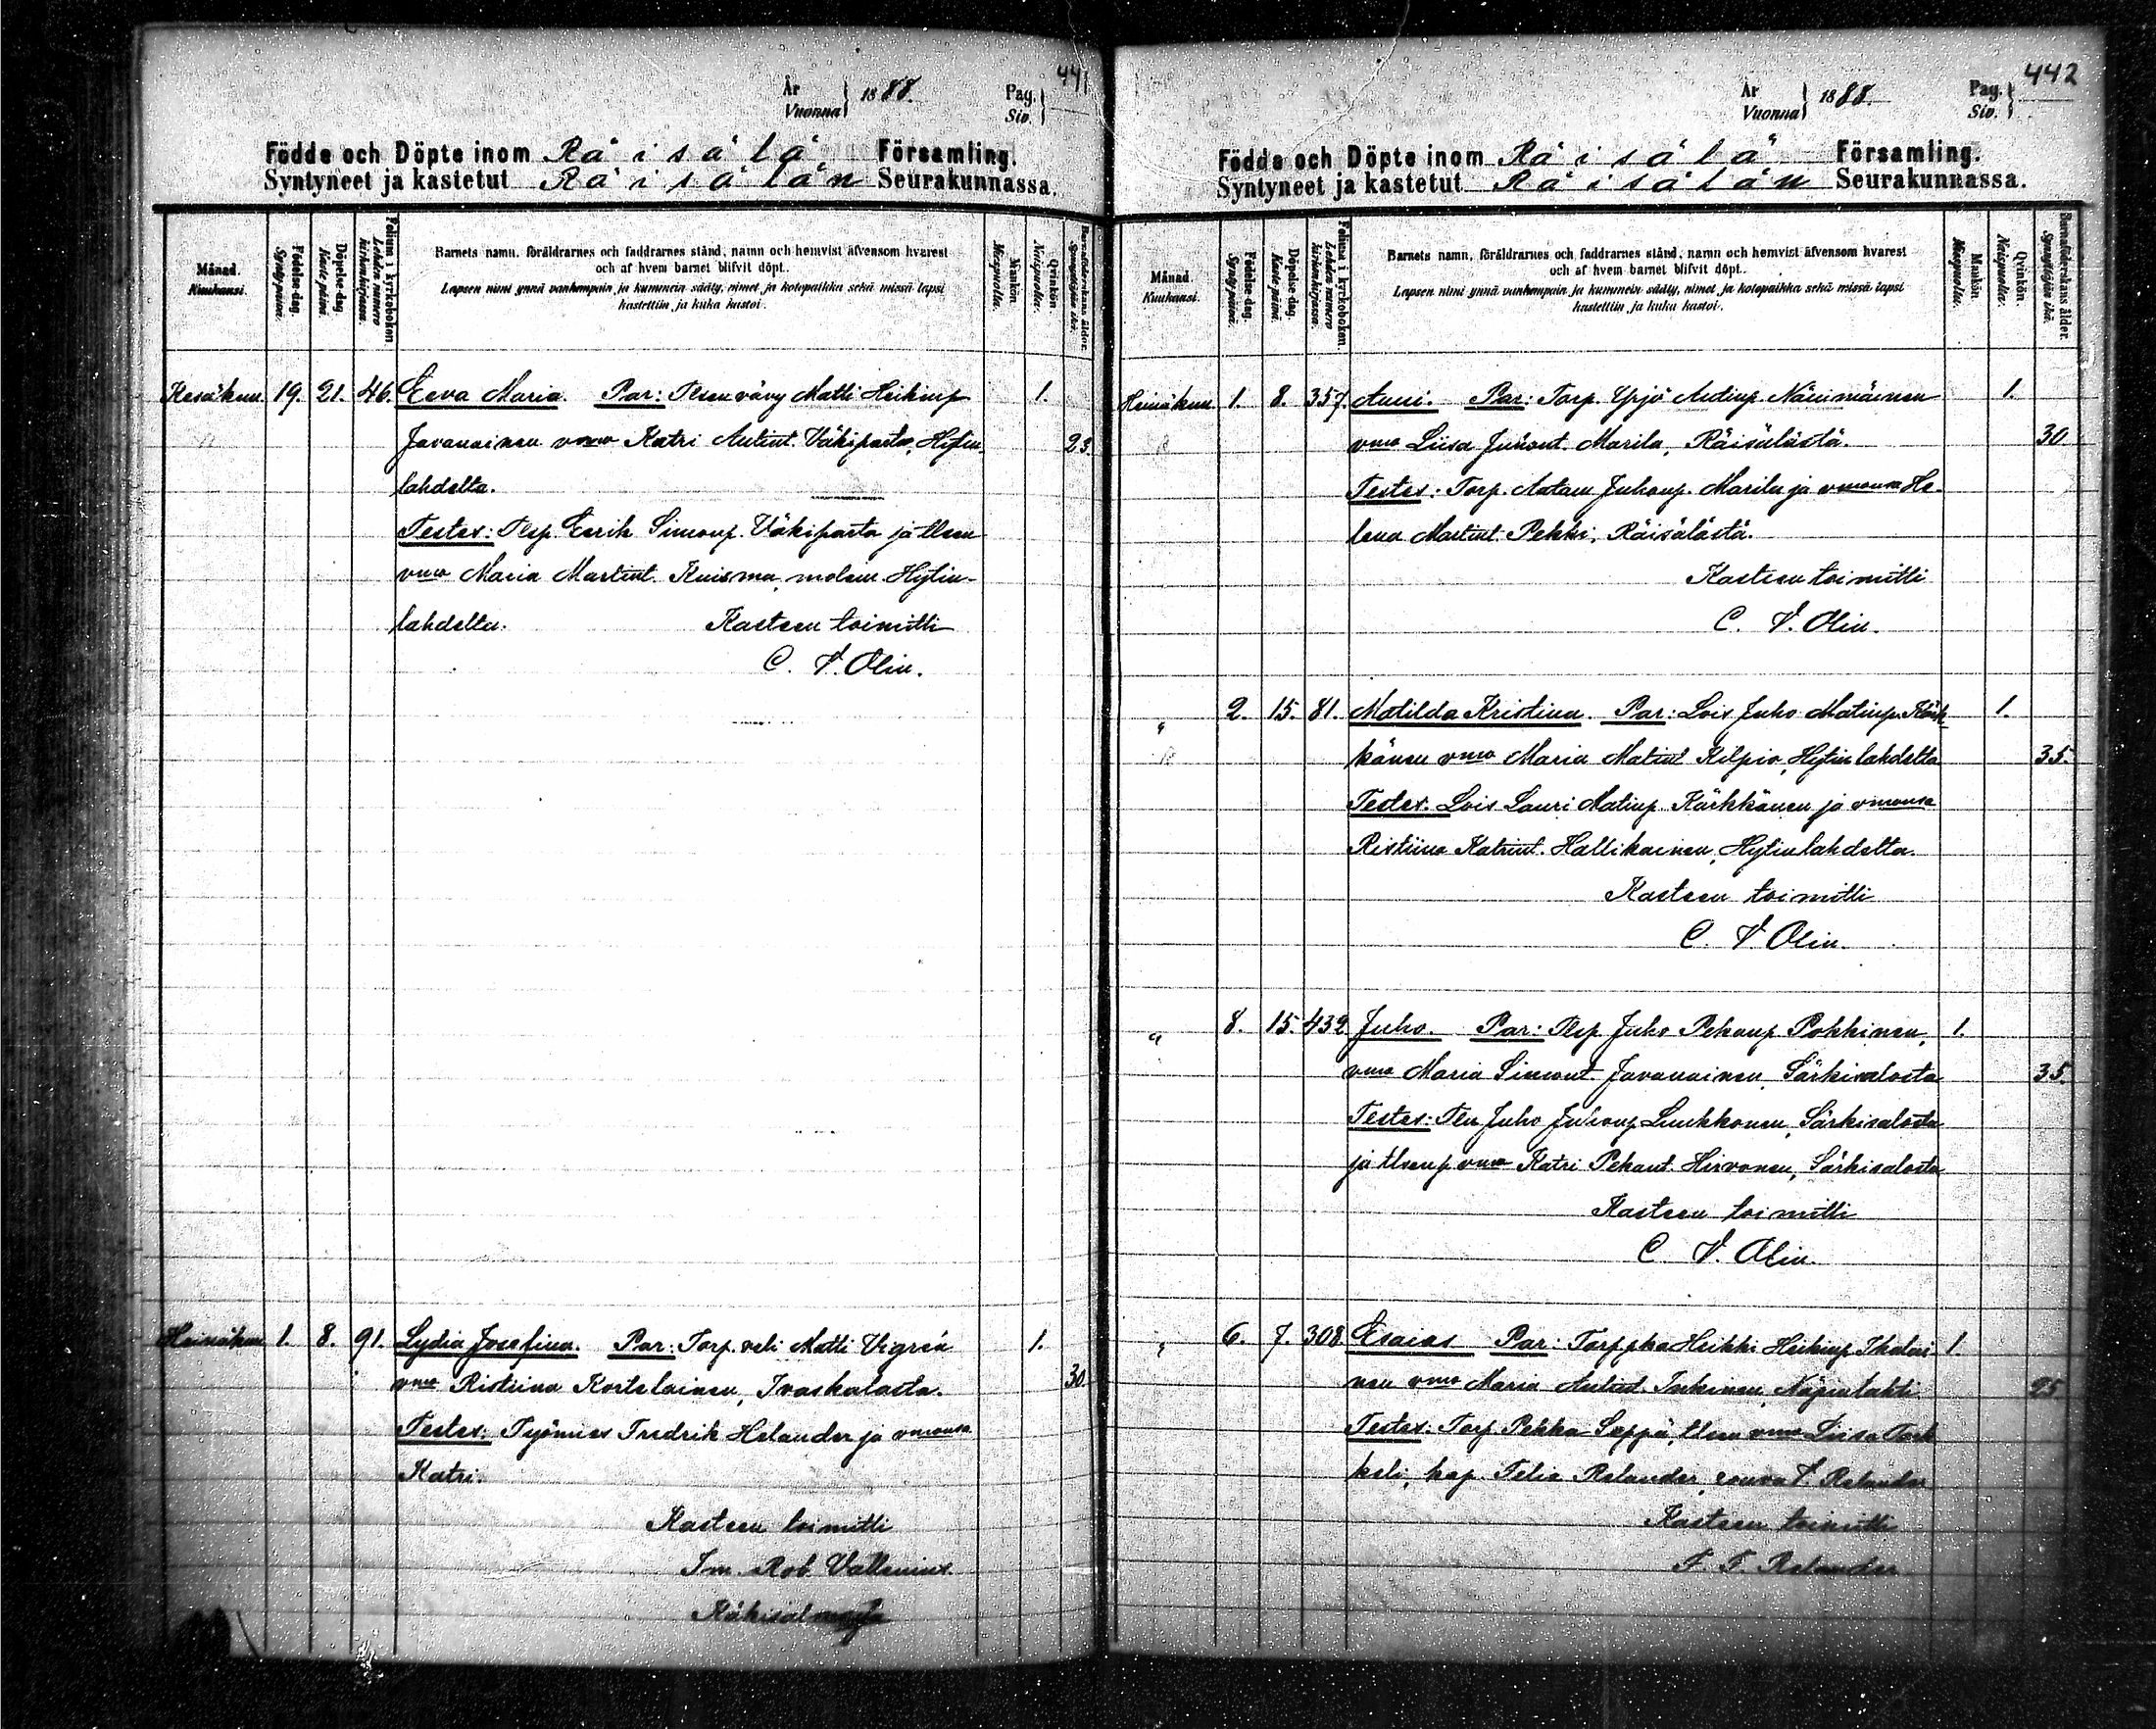 441
År
Vuonna
1888.
Pag.
Siv.
Födde och Döpte inom Räisälä Församling.
Syntyneet ja kastetut Räisälän Seurakunnassa.
Månad. Kuukausi.
Födelse-dag. Syntypäivä.
Döpelse-dag. Kaste päivä.
Folium i kyrkoboken. Lehden numero kirkonkirjassa.
Barnets namn, föräldrarnes och faddrarnes stånd, namn och hemvist äfvensom hvarest
och af hvem barnet blifvit döpt.
Lapsen nimi ynnä vanhempain ja kummein sääty, nimet ja kotopaikka sekä missä lapsi
kastettiin ja kuka kastoi.
Mankön. Miespuolia.
Qvinkön. Naispuolia.
Barnaföderskans ålder. Synnyttäjän ikä.
Kesäkuu 19. 21. 46. Eeva Maria. Par: Tlsen vävy Matti Heikinp 1.
Javanainen vmo Katri Antint. Väkiparta, Hytin- 23.
lahdelta.
Testes: Tlsp. Eerik Simonp. Väkiparta ja tlsen
vmo Maria Martint. Kuisma, molem. Hytin-
lahdelta. Kasteen toimitti
C. V. Olin.
Heinäkuu 1. 8. 91. Lydia Josefina. Par: Torp. veli Matti Vigrén 1.
vmo Ristiina Kortelainen, Ivaskalasta. 30.
Testes: Työmies Fredrik Helander ja vmonsa
Katri.
Kasteen toimitti
Im. Rob. Vallenius.
Käkisalmesta
442
År
Vuonna
1888.
Pag.
Siv.
Födde och Döpte inom Räisälä Församling.
Syntyneet ja kastetut Räisälän Seurakunnassa.
Månad. Kuukausi.
Födelse-dag. Syntypäivä.
Döpelse-dag. Kaste päivä.
Folium i kyrkoboken. Lehden numero kirkonkirjassa.
Barnets namn, föräldrarnes och faddrarnes stånd, namn och hemvist äfvensom hvarest
och af hvem barnet blifvit döpt.
Lapsen nimi ynnä vanhempain ja kummein sääty, nimet ja kotopaikka sekä missä lapsi
kastettiin ja kuka kastoi.
Mankön. Miespuolia.
Qvinkön. Naispuolia.
Barnaföderskans ålder. Synnyttäjän ikä.
Heinäkuu 1. 8. 357. Anni. Par: Torp. Yrjö Antinp. Närimäinen 1.
vmo Liisa Juhont. Marila, Räisälästä. 30
Testes: Torp. Antan Juhonp. Marila ja vmonsa He-
lena Martint. Pekki, Räisälästä.
Kasteen toimitti
C. V. Olin.
" 2. 15. 81. Matilda Kristina. Par: Lois Juho Matinp. Kärk- 1.
känen vmo Maria Matint Kilpio, Hytinlahdelta 35.
Testes. Lois Lauri Matinp. Kärkkänen ja vmonsa
Ristiina Katrint. Hallikainen, Hytinlahdelta.
Kasteen toimitti
C. V. Olin
" 8. 15. 432 Juho. Par: Tlsp. Juho Pekanp Pokkinen, 1.
vmo Maria Simont. Javanainen, Särkisalosta 35.
Testes: Tln Juho Juhonp Luukkonen, Särkisalosta
ja tlsenp vmo Katri Pekant. Hirvonen, Särkisalosta
Kasteen toimitti
C. V. Olin.
" 6. 7. 308 Esaias Par: Torp.pka Heikki Heikinp Ikalai- 1.
nen vmo Maria Antint. Inkinen, Näpinlahti 25
Testes: Torp Pekka Seppä, tlsen vmo Liisa Tork-
keli, kap. Felix Relander, rouva V. Relander
Kasteen toimitti
F. F. Relander